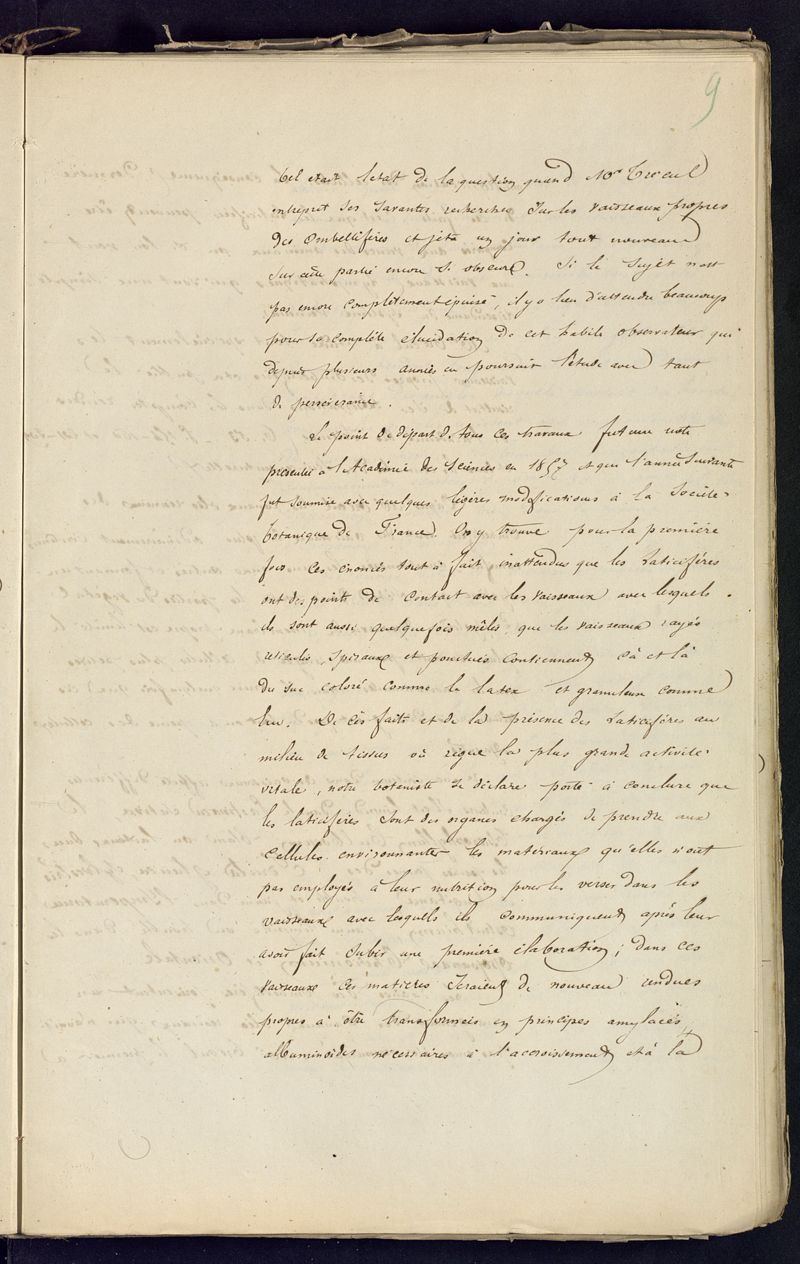 9
Tel etait l'etat de la question quand Mr Trécul
entreprit ses savantes recherches sur les vaisseaux propres
des Ombellifères et jéta un jour tout nouveau
sur cette partie encore si obscure. Si le sujet n'est
pas encore complètement épuisé, il y a lieu d'attendre beaucoup
pour sa complète élucidation de cet habile observateur qui
depuis plusieurs années en poursuit l'étude avec tant
de persévérance.
Le point de départ de tous ces travaux fut une note
presentée à l'Académie des Sciences en 1857 et qui l'année suivante
fut soumise avec quelques légères modifications à la Société
botanique de France. On y trouve pour la première
fois ces énoncés tout à fait inattendus que les laticifères
ont des points de contact avec les vaisseaux avec lesquels
ils sont aussi quelquefois mêlés, que les vaisseaux rayés
reticulés, spiraux et ponctués contiennent çà et là
du suc coloré comme le latex et granuleux comme
lui. De ces faits et de la présence des laticifères au
milieu de tissus où règne la plus grande activité
vitale, notre botaniste se déclare porté à conclure que
les laticifères sont des organes chargés de prendre aux
cellules environnantes les matériaux qu'elles n'ont
pas employés à leur nutrition pour les verser dans les
vaisseaux avec lesquels ils communiquent après leur
avoir fait subir une première élaboration; dans ces
vaisseaux ces matières seraient de nouveau rendues
propres à être transformées en principes amylacés,
albuminoïdes nécessaires à l'accroissement et à la